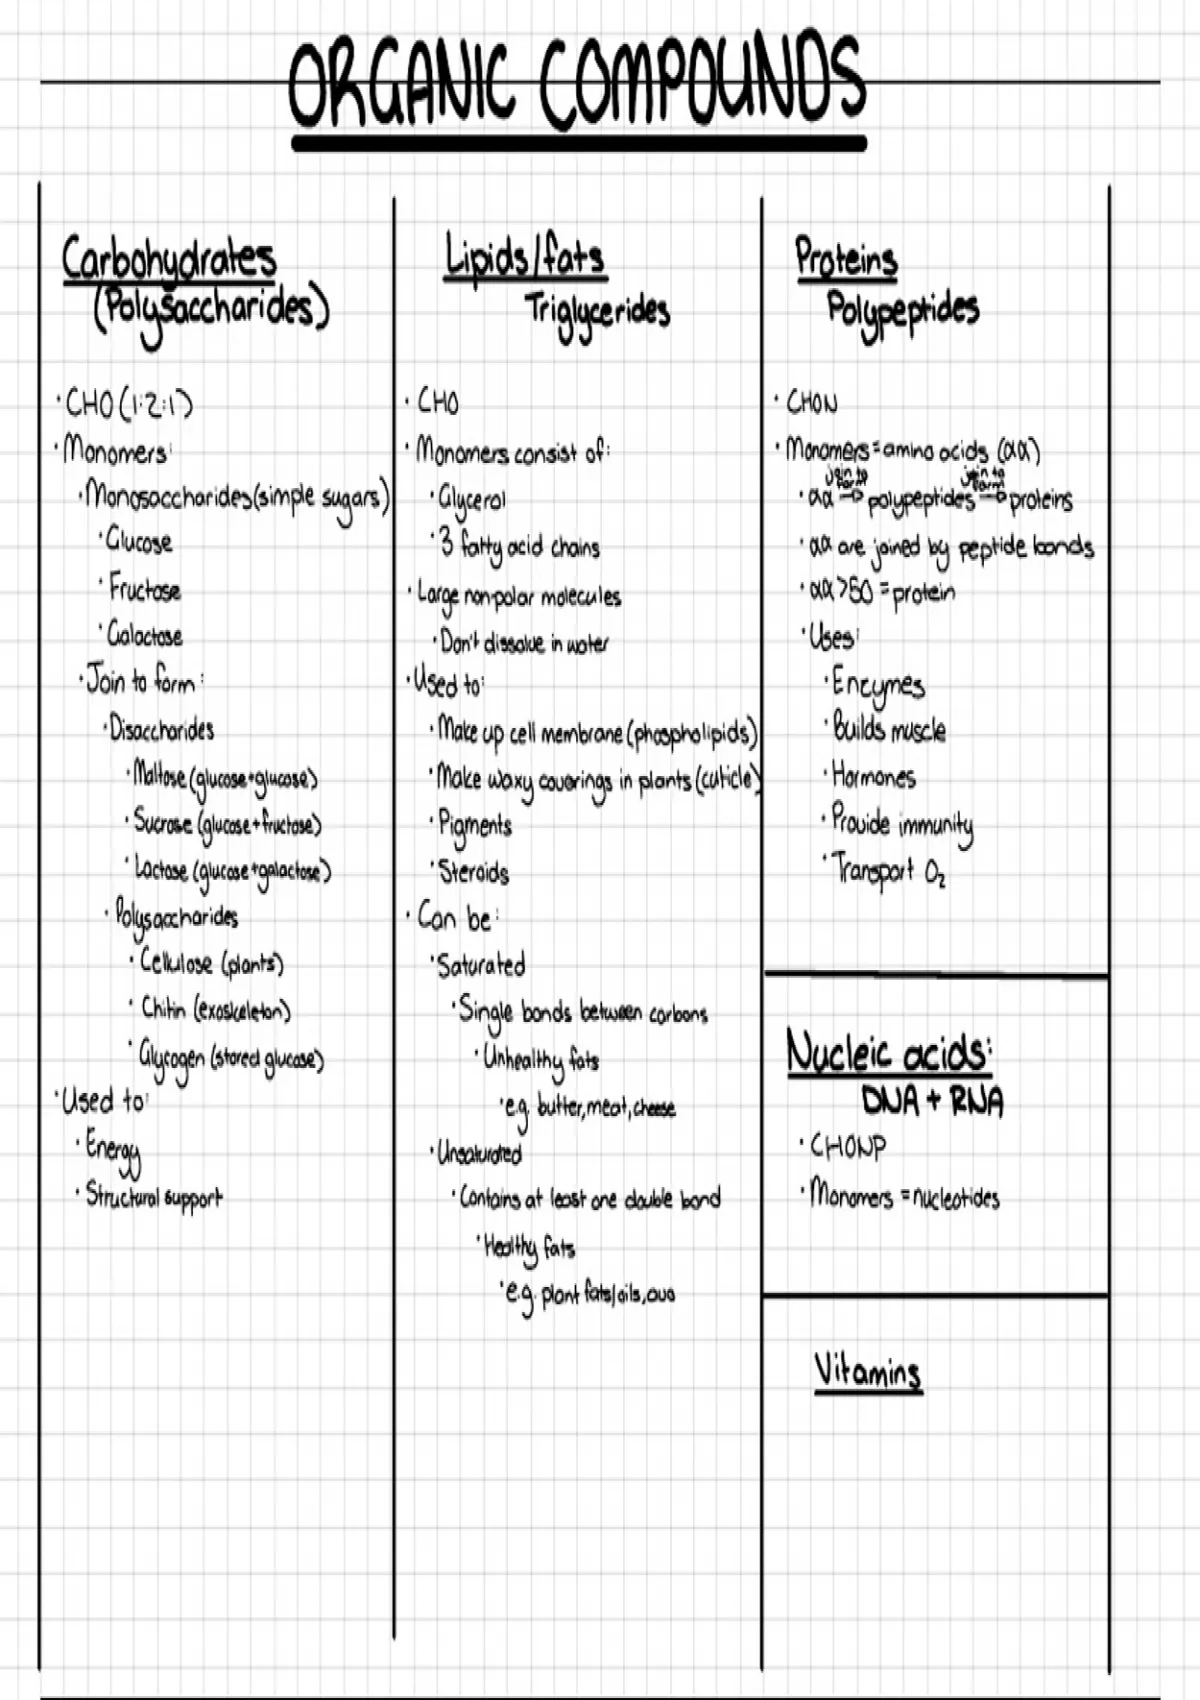 ORGANIC COMPOUNDS
Carbohydrates
(Polysaccharides)
· CHO (1:2:1)
· Monomers:
· Monosaccharides (simple sugars)
· Glucose
· Fructose
· Galactose
· Join to form:
· Disaccharides
· Maltose (glucose+glucose)
· Sucrose (glucose+fructose)
· Lactose (glucose+galactose)
· Polysaccharides
· Cellulose (plants)
· Chitin (exoskeleton)
· Glycogen (stored glucose)
· Used to:
· Energy
· Structural support
Lipids/fats
Triglycerides
· CHO
· Monomers consist of:
· Glycerol
· 3 fatty acid chains
· Large nonpolar molecules
· Don't dissolve in water
· Used to:
· Make up cell membrane (phospholipids)
· Make waxy coverings in plants (cuticle)
· Pigments
· Steroids
· Can be:
· Saturated
· Single bonds between carbons
· Unhealthy fats
· e.g. butter, meat, cheese
· Unsaturated
· Contains at least one double bond
· Healthy fats
· e.g. plant fats/oils, avo
Proteins
Polypeptides
· CHON
· Monomers = amino acids (aa)
join to form join to form
· aa → polypeptides → proteins
· aa are joined by peptide bonds
· aa >50 = protein
· Uses:
· Enzymes
· Builds muscle
· Hormones
· Provide immunity
· Transport O₂
Nucleic acids:
DNA + RNA
· CHONP
· Monomers = nucleotides
Vitamins